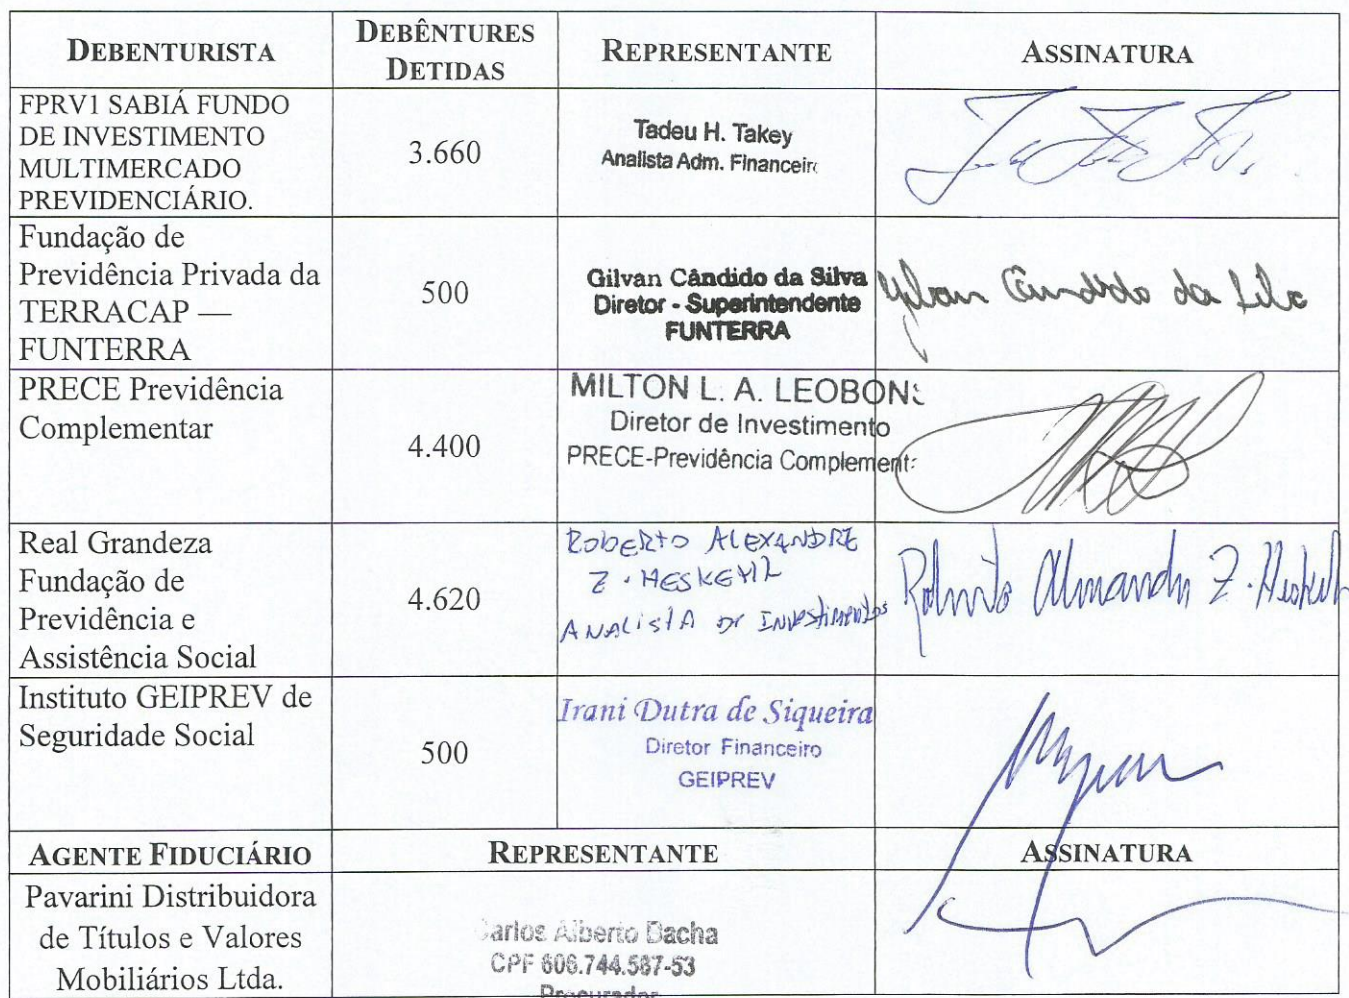 DEBENTURISTA
DEBÊNTURES
DETIDAS
REPRESENTANTE
ASSINATURA
FPRV1 SABIÁ FUNDO
DE INVESTIMENTO
MULTIMERCADO
PREVIDENCIÁRIO.
3.660
Tadeu H. Takey
Analista Adm. Financeiro
Fundação de
Previdência Privada da
TERRACAP —
FUNTERRA
500
Gilvan Cândido da Silva
Diretor - Superintendente
FUNTERRA
Gilvan Cândido da Silva
PRECE Previdência
Complementar
4.400
MILTON L. A. LEOBONS
Diretor de Investimento
PRECE-Previdência Complementa
Real Grandeza
Fundação de
Previdência e
Assistência Social
4.620
ROBERTO ALEXANDRE
Z. HESKETH
ANALISTA DE INVESTIMENTOS
Roberto Alexandre Z. Hesketh
Instituto GEIPREV de
Seguridade Social
500
Irani Dutra de Siqueira
Diretor Financeiro
GEIPREV
AGENTE FIDUCIÁRIO
REPRESENTANTE
ASSINATURA
Pavarini Distribuidora
de Títulos e Valores
Mobiliários Ltda.
Carlos Alberto Bacha
CPF 606.744.587-53
Procurador